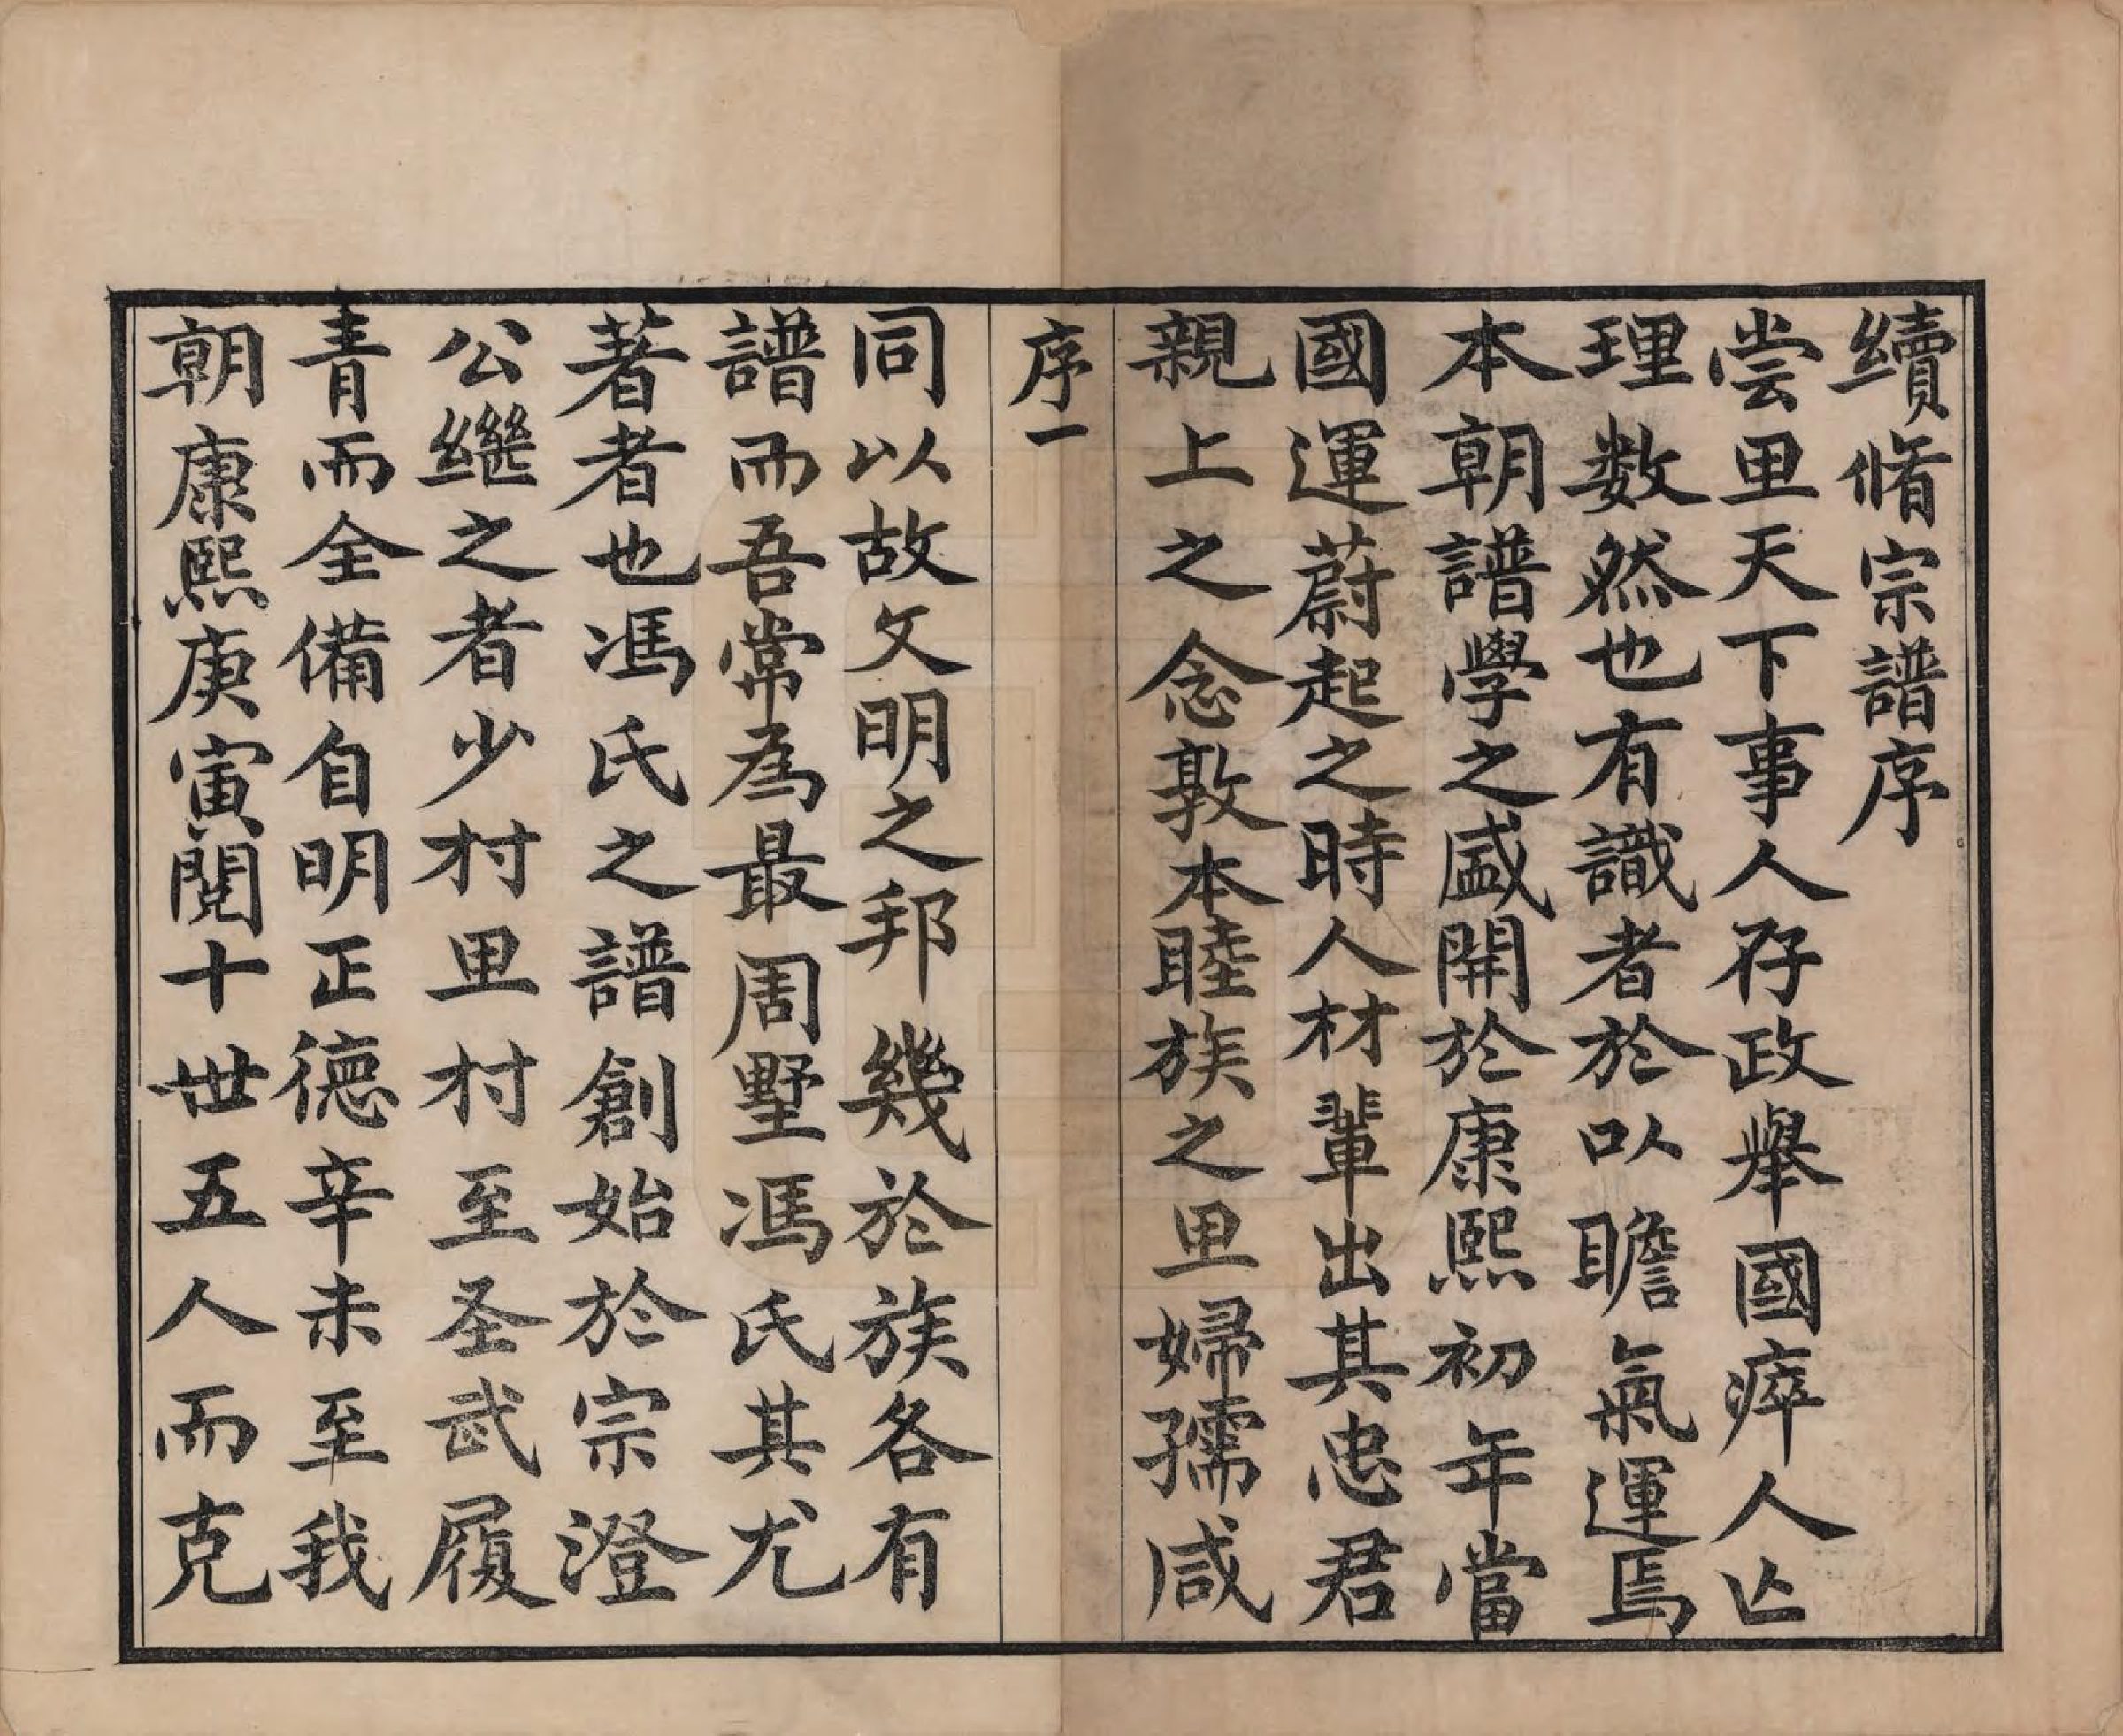 續脩宗譜序
尝里天下事人存政舉國瘁人亾
理数然也有識者於以瞻氣運焉
本朝譜學之盛開於康熙初年當
國運蔚起之時人材輩出其忠君
親上之念敦本睦族之里婦孺咸
序一
同以故文明之邦幾於族各有
譜而吾常為最周墅馮氏其尤
著者也馮氏之譜創始於宗澄
公繼之者少村里村至圣武履
青而全備自明正德辛未至我
朝康熙庚寅閱十世五人而克